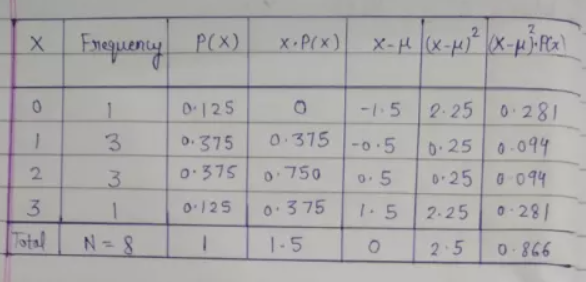 X Frequency P(X) X·P(X) X-μ (X-μ)² (X-μ)²·P(X)
0 1 0.125 0 -1.5 2.25 0.281
1 3 0.375 0.375 -0.5 0.25 0.094
2 3 0.375 0.750 0.5 0.25 0.094
3 1 0.125 0.375 1.5 2.25 0.281
Total N = 8 1 1.5 0 2.5 0.866